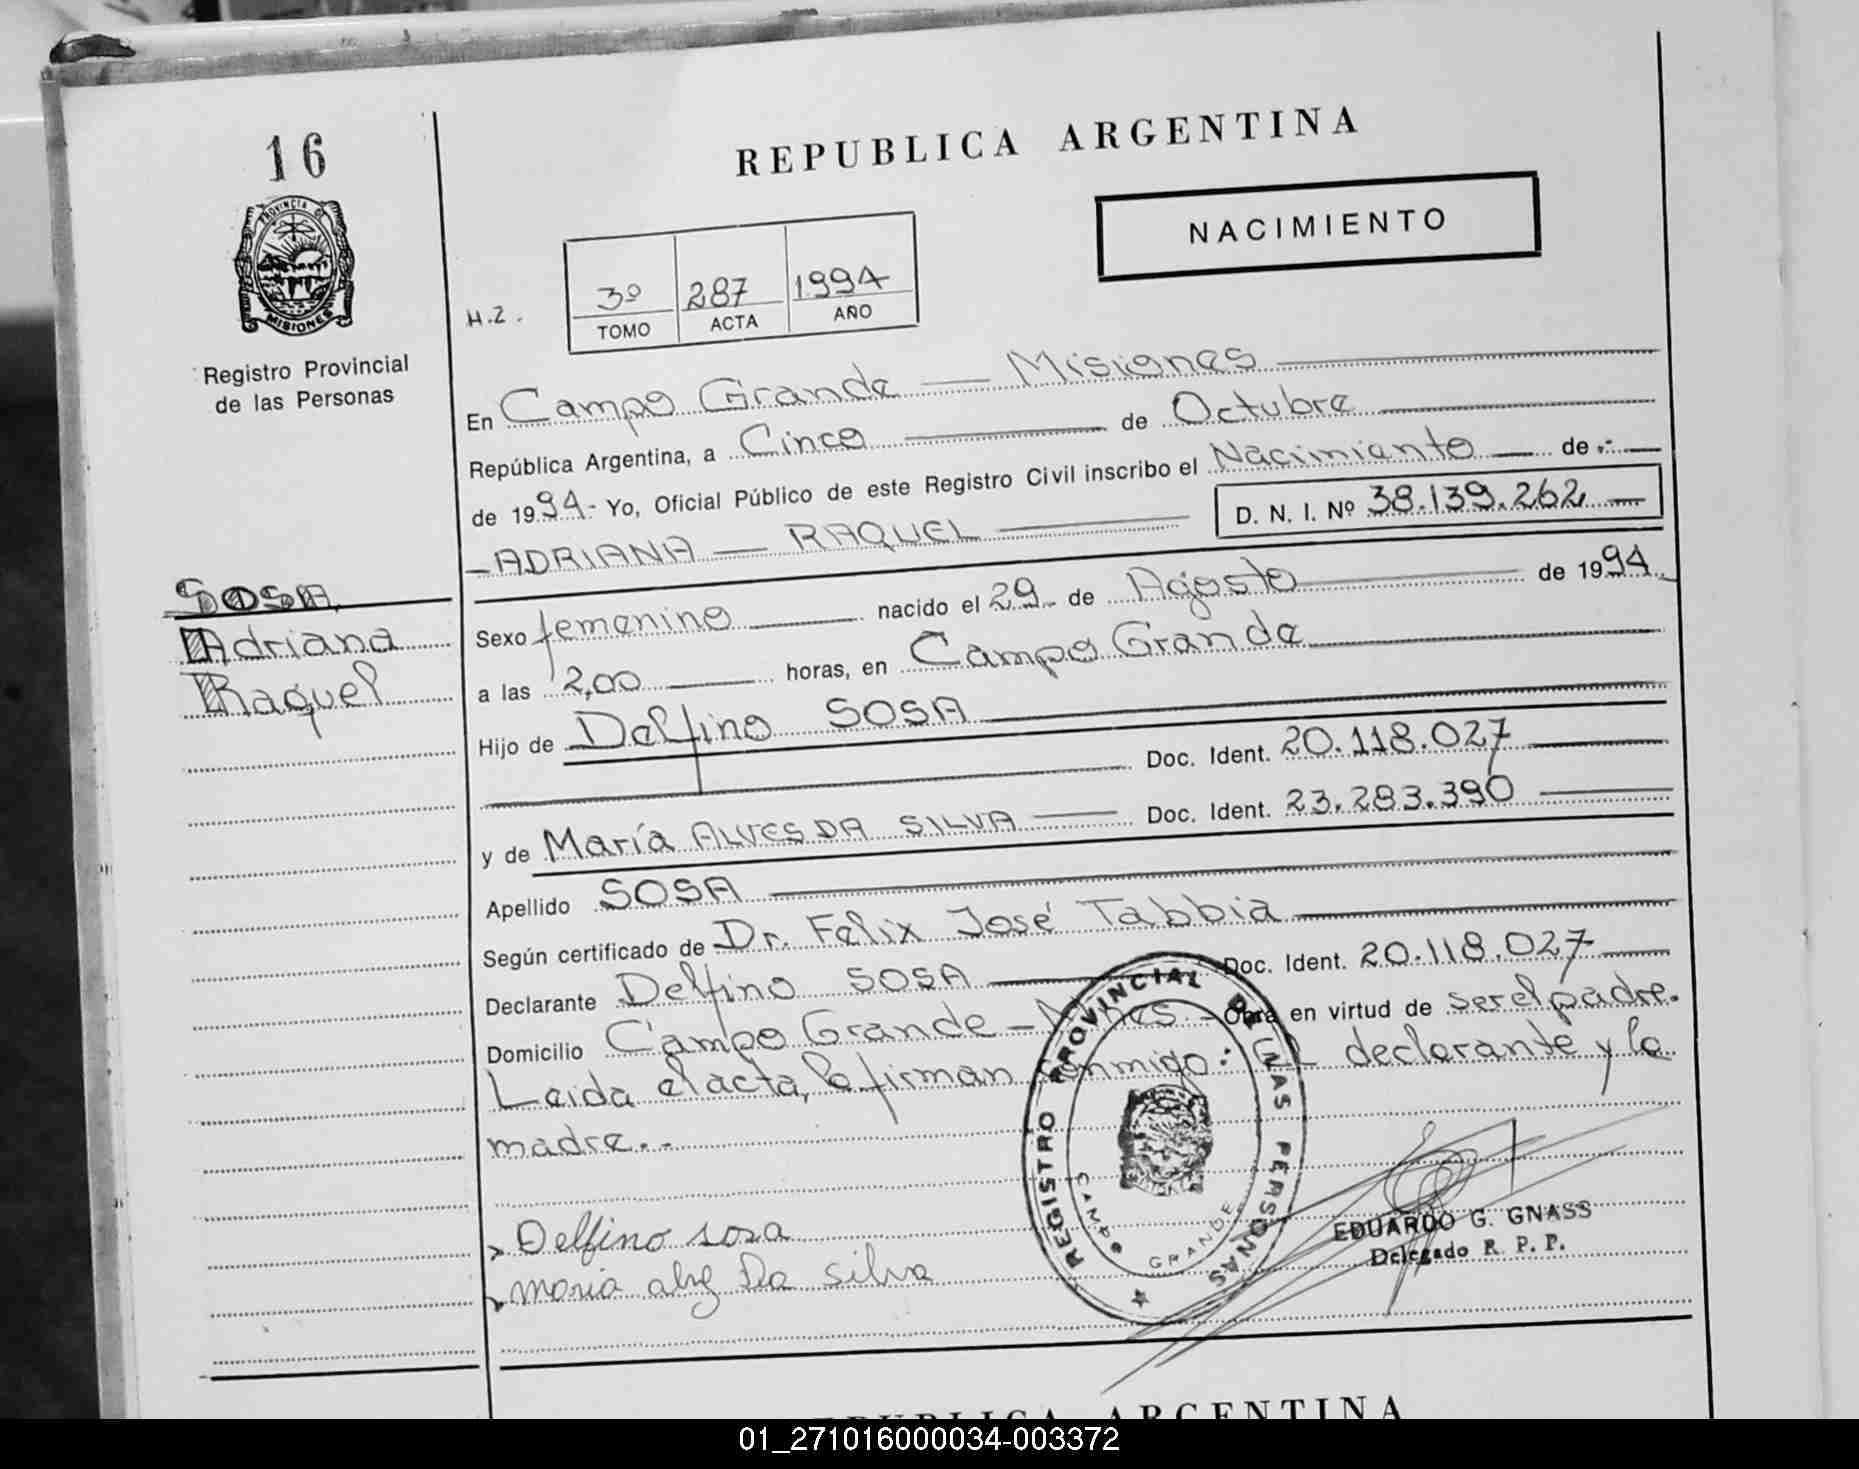 16
PROVINCIA DE
MISIONES
Registro Provincial
de las Personas
REPUBLICA ARGENTINA
NACIMIENTO
H.2.
3º 287 1994
TOMO ACTA AÑO
En Campo Grande — Misiones
República Argentina, a Cinco de Octubre
de 1994.- Yo, Oficial Público de este Registro Civil inscribo el Nacimiento — de .-
D. N. I. Nº 38.139.262
-ADRIANA — RAQUEL
SOSA
Adriana
Raquel
Sexo femenino nacido el 29 de Agosto de 1994.
a las 2,00 horas, en Campo Grande
Hijo de Delfino SOSA
Doc. Ident. 20.118.027
y de María ALVES DA SILVA Doc. Ident. 23.283.390
Apellido SOSA
Según certificado de Dr. Felix José Tabbia
Declarante Delfino SOSA Doc. Ident. 20.118.027
Domicilio Campo Grande - Mnes - Obra en virtud de ser el padre.
Leida el acta, la firman conmigo: EL declarante y la
madre.-
Delfino sosa
maria Da silva
REGISTRO PROVINCIAL DE LAS PERSONAS
CAMPO GRANDE
EDUARDO G. GNASS
Delegado R. P. P.
REPUBLICA ARGENTINA
01_271016000034-003372